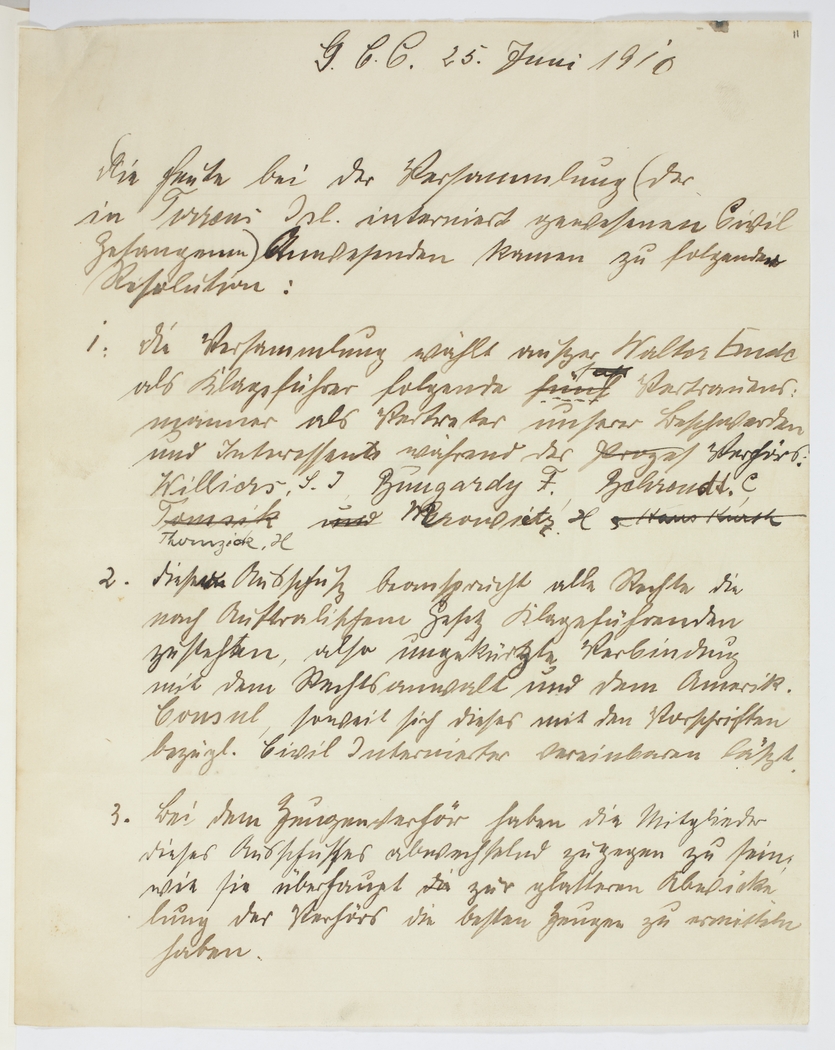 G. C. C. 25. Juni 1910
Die heute bei der Versammlung (der
in Torrens Isl. interniert gewesenen Civil
Gefangenen) Anwesenden kamen zu folgender
Resolution:
1. die Versammlung wählt außer Walter Emde
als Klageführer folgende fünf Vertrauens:
männer als Vertreter unserer Beschwerden
und Interessen während des Prozeß Verhörs:
Williers, S. J, Bungardy F., Behrendt. C,
Tomzik und Werowitz, H Hans Kursk
Thomzick, H
2. dieser Ausschuß beansprucht alle Rechte die
nach Australischem Gesetz Klageführenden
zustehen, also ungekürzte Verbindung
mit dem Rechtsanwalt und dem Amerik.
Consul, soweit sich dieses mit den Vorschriften
bezügl. Civil Internierter vereinbaren läßt.
3. Bei dem Zeugenverhör haben die Mitglieder
dieses Ausschußes abwechselnd zugegen zu sein,
wie sie überhaupt die zur glatteren Abwicke
lung der Verhörs die besten Zeugen zu ermitteln
haben.
11